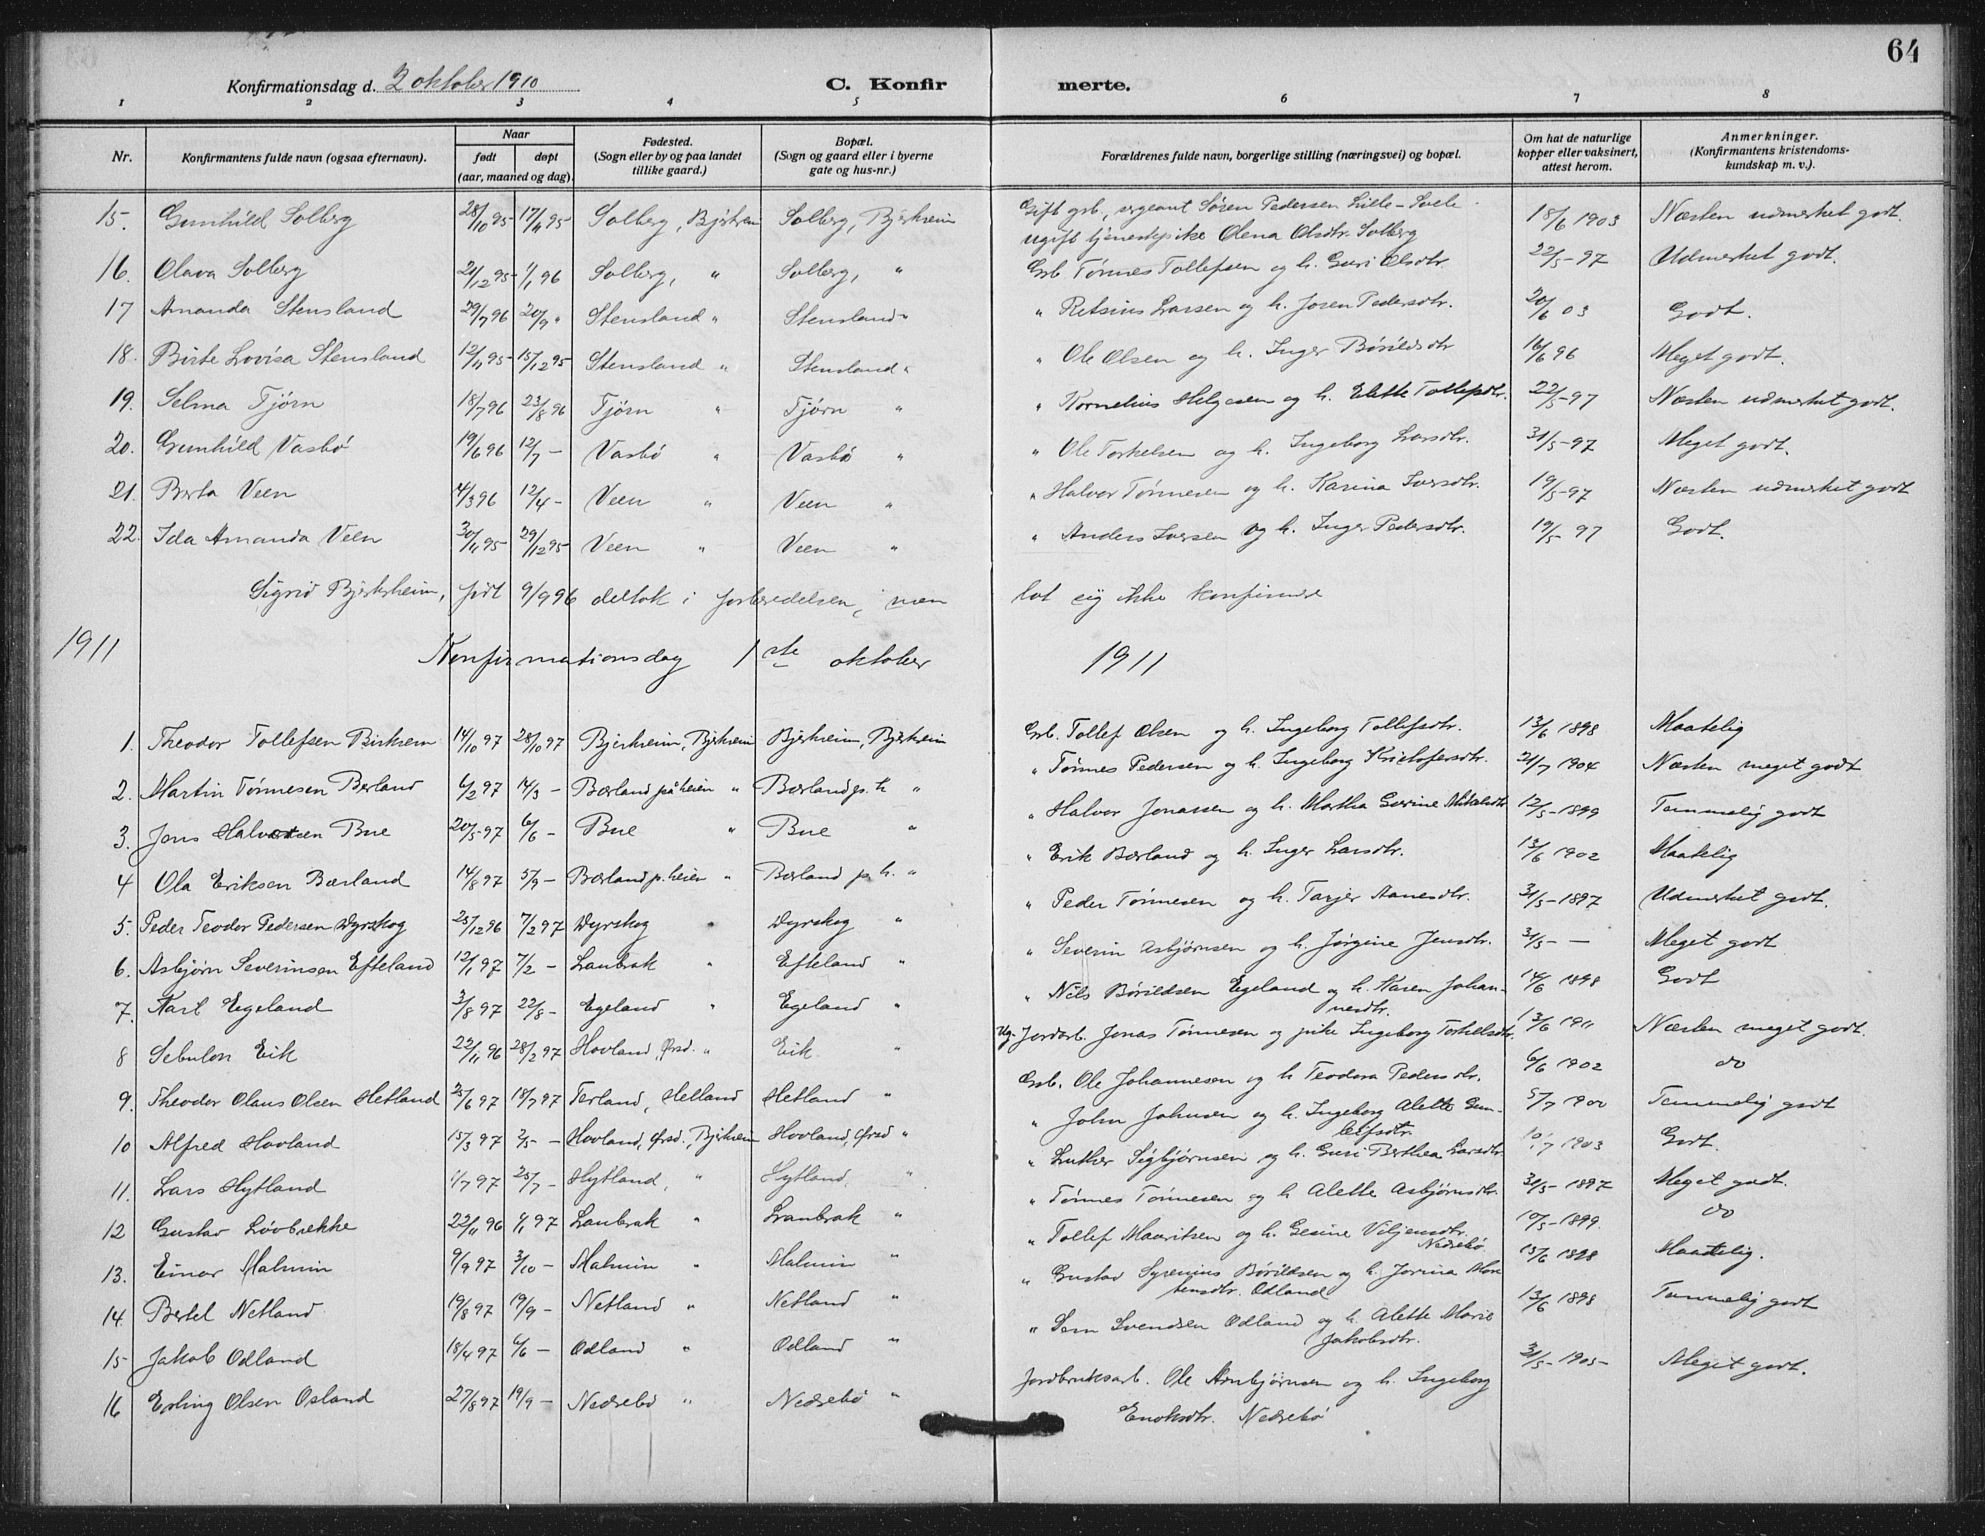 64
Konfirmationsdag d. 2 oktober 1910 C. Konfirmerte.
1 2 3 4 5 6 7 8
Nr. Konfirmantens fulde navn (ogsaa efternavn). Naar født døpt (aar, maaned og dag). Fødested. (Sogn eller by og paa landet tillike gaard.) Bopæl. (Sogn og gaard eller i byerne gate og hus-nr.) Forældrenes fulde navn, borgerlige stilling (næringsvei) og bopæl. Om hat de naturlige kopper eller vaksinert, attest herom. Anmerkninger. (Konfirmantens kristendomskundskap m. v.).
15. Gunhild Solberg 28/10 95 17/11 95 Solberg, Bjerkreim Solberg, Bjerkreim Gift grb, sergeant Sören Pedersen Lille-Svele ugift tjenestepike Olena Olsdtr. Solberg 18/6 1903 Næsten udmerket godt.
16. Olava Solberg 21/12 95 1/1 96 Solberg, " Solberg, " Grb Tönnes Tollefsen og h. Guri Olsdtr. 22/5-97 Udmerket godt.
17 Amanda Stensland 29/7 96 20/9 " Stensland " Stensland " " Retsius Larsen og h. Josen Pedersdtr. 20/6 03 Godt.
18. Birte Lovisa Stensland 12/11 95 15/12 95 Stensland " Stensland " " Ole Olsen og h. Inger Börildsdtr 16/6 96 Meget godt.
19. Selma Tjörn 18/7 96 23/8 96 Tjörn " Tjörn " " Kornelius Helgesen og h. Elette Tollefsdtr. 22/5-97 Næsten udmerket godt.
20. Gunhild Vasbö 19/6 96 12/7 - Vasbö " Vasbö " " Ole Torkelsen og h. Ingeborg Larsdtr. 31/5-97 Meget godt.
21. Berta Veen 4/3 96 12/4 - Veen " Veen " " Halvor Tönnesen og h. Karina Iversdtr. 19/5-97 Næsten udmerket godt
22. Ida Amanda Veen 30/11 95 29/12 95 Veen " Veen " " Anders Iversen og h. Inger Pedersdtr. 19/5 97 Godt.
Sigrid Bjerkreim, født 9/9 96 deltok i forberedelsen, men lot sig ikke konfirmere
1911 Konfirmationsdag 1ste oktober 1911
1. Theodor Tollefsen Birkrem 14/10 97 28/10 97 Bjerkreim, Bjerkreim Bjerkreim, Bjerkreim Grb. Tollef Olsen og h. Ingeborg Tollefsdtr. 13/6 1898 Maatelig
2. Martin Tönnesen Berland 6/2 97 14/3 - Børland på heien " Børland p. h " " Tönnes Pedersen og h. Ingeborg Kristofersdtr. 21/7 1904 Næsten meget godt
3. Jons Halvorsen Bue 20/5 97 6/6 - Bue " Bue " " Halvor Jonassen og h. Martha Gurine Mikaelsdtr 12/5-1899 Temmelig godt
4 Ola Eriksen Bærland 14/8 97 5/9 - Børland p. heien " Børland p. h. " " Erik Børland og h. Inger Larsdtr. 13/6 1902 Maatelig
5. Peder Teodor Pedersen Dyrskog 25/12 96 7/2 97 Dyrskog " Dyrskog " " Peder Tönnesen og h. Tarjer Aanesdtr. 31/5-1897 Udmerket godt.
6. Asbjörn Severinsen Efteland 12/1 97 7/2 - Laubrak " Efteland " " Severin Asbjørnsen og h. Jörgine Jensdtr. 31/5 - - Meget godt
7. Karl Egeland 3/8 97 22/8 - Egeland " Egeland " " Nils Börildsen Egeland og h. Karen Johannesdtr. 14/6 1898 Godt
8 Sebulon Eik 22/11 96 28/2 97 Hovland, Örsd. " Eik. " Ug. Jordarb. Jonas Tönnesen og pike Ingeborg Torkelsdtr. 13/6 1911 Næsten meget godt.
9. Theodor Olaus Olsen Hetland 25/6 97 18/7 97 Terland, Helland Hetland " Grb. Ole Johannesen og h Teodora Pedersdtr. 6/6 1902 do
10 Alfred Hovland 15/3 97 2/5 - Hovland, Örsd., Bjerkreim Hovland, Örsd " " John Johnsen og h. Ingeborg Alette Gunleifsdtr. 5/7 1900 Temmelig godt
11. Lars Hytland 1/7 97 25/7 - Hytland, " Hytland. " " Luther Sigbjörnsen og h. Guri Berthea Larsdtr. 10/7 1903 Godt.
12 Gustav Lövbrekke 22/11 96 1/1 97 Laubrak " Laubrak " " Tönnes Tönnesen og h Alette Asbjörnsdtr. 31/5-1897 Meget godt.
13. Einar Malmin 9/9 97 3/10 - Malmin " Malmin " " Tollef Mauritsen og h. Gesine Viljemsdtr. Nedrebö 10/5-1899. do
14. Bertel Netland 19/8 97 19/9 - Netland " Netland " " Gustav Syrenius Börildsen og h. Jorina Mortensdtr. Odland 15/6 1898 Maatelig.
15 Jakob Odland 18/4 97 6/6 - Odland " Odland " " Sem Svendsen Odland og h. Alette Marie Jakobsdtr. 13/6 1898 Temmelig godt
16 Erling Olsen Osland 27/8 97 19/9 - Nedrebö " Nedrebö " Jordbruksarb. Ole Arnbjörnsen og h. Ingeborg Enoksdtr. Nedrebö 31/5-1905- Meget godt.